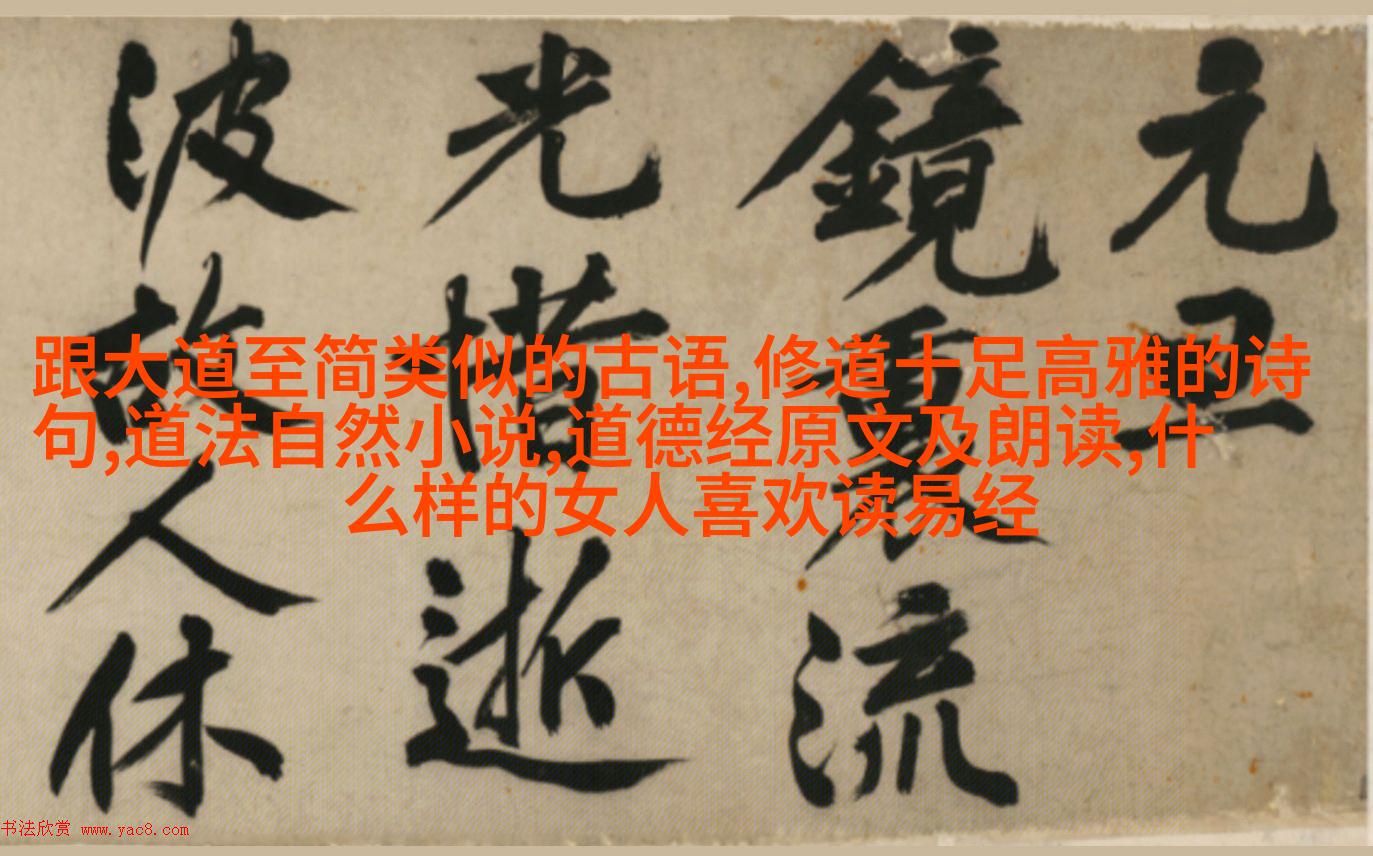 元
鏡裏流
光惜逝
波故人休
跟大道至简类似的古语,修道十足高雅的诗
句,道法自然小说,道德经原文及朗读,什
么样的女人喜欢读易经
书法欣赏 www.yac8.com